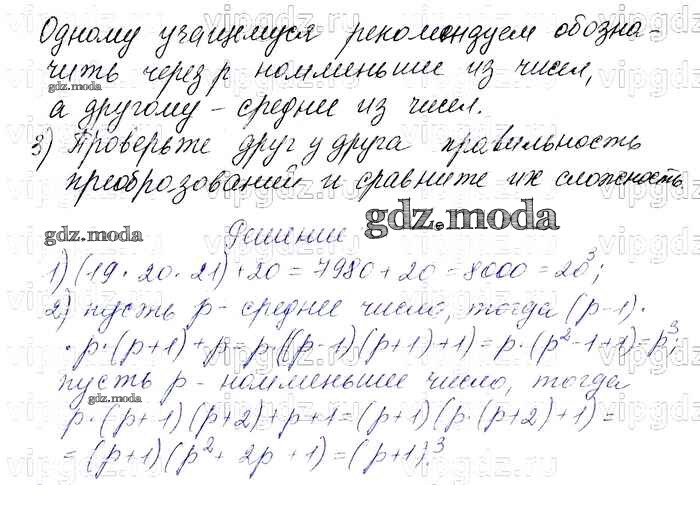 Одному учащемуся рекомендуем обозна-
чить через p наименьшее из чисел,
gdz.moda
а другому – среднее из чисел.
3) Проверьте друг у друга правильность
преобразований и сравните их сложность.
gdz.moda
gdz.moda
Решение
1) (19 · 20 · 21) + 20 = 7980 + 20 = 8000 = 20³;
2) пусть p – среднее число, тогда (p-1) ·
· p · (p+1) + p = p · ((p-1)(p+1)+1) = p · (p²-1+1) = p³;
пусть p – наименьшее число, тогда
gdz.moda
p · (p+1)(p+2)+p+1 = (p+1)(p · (p+2)+1) =
= (p+1)(p² + 2p + 1) = (p+1)³
vipgdz.ru